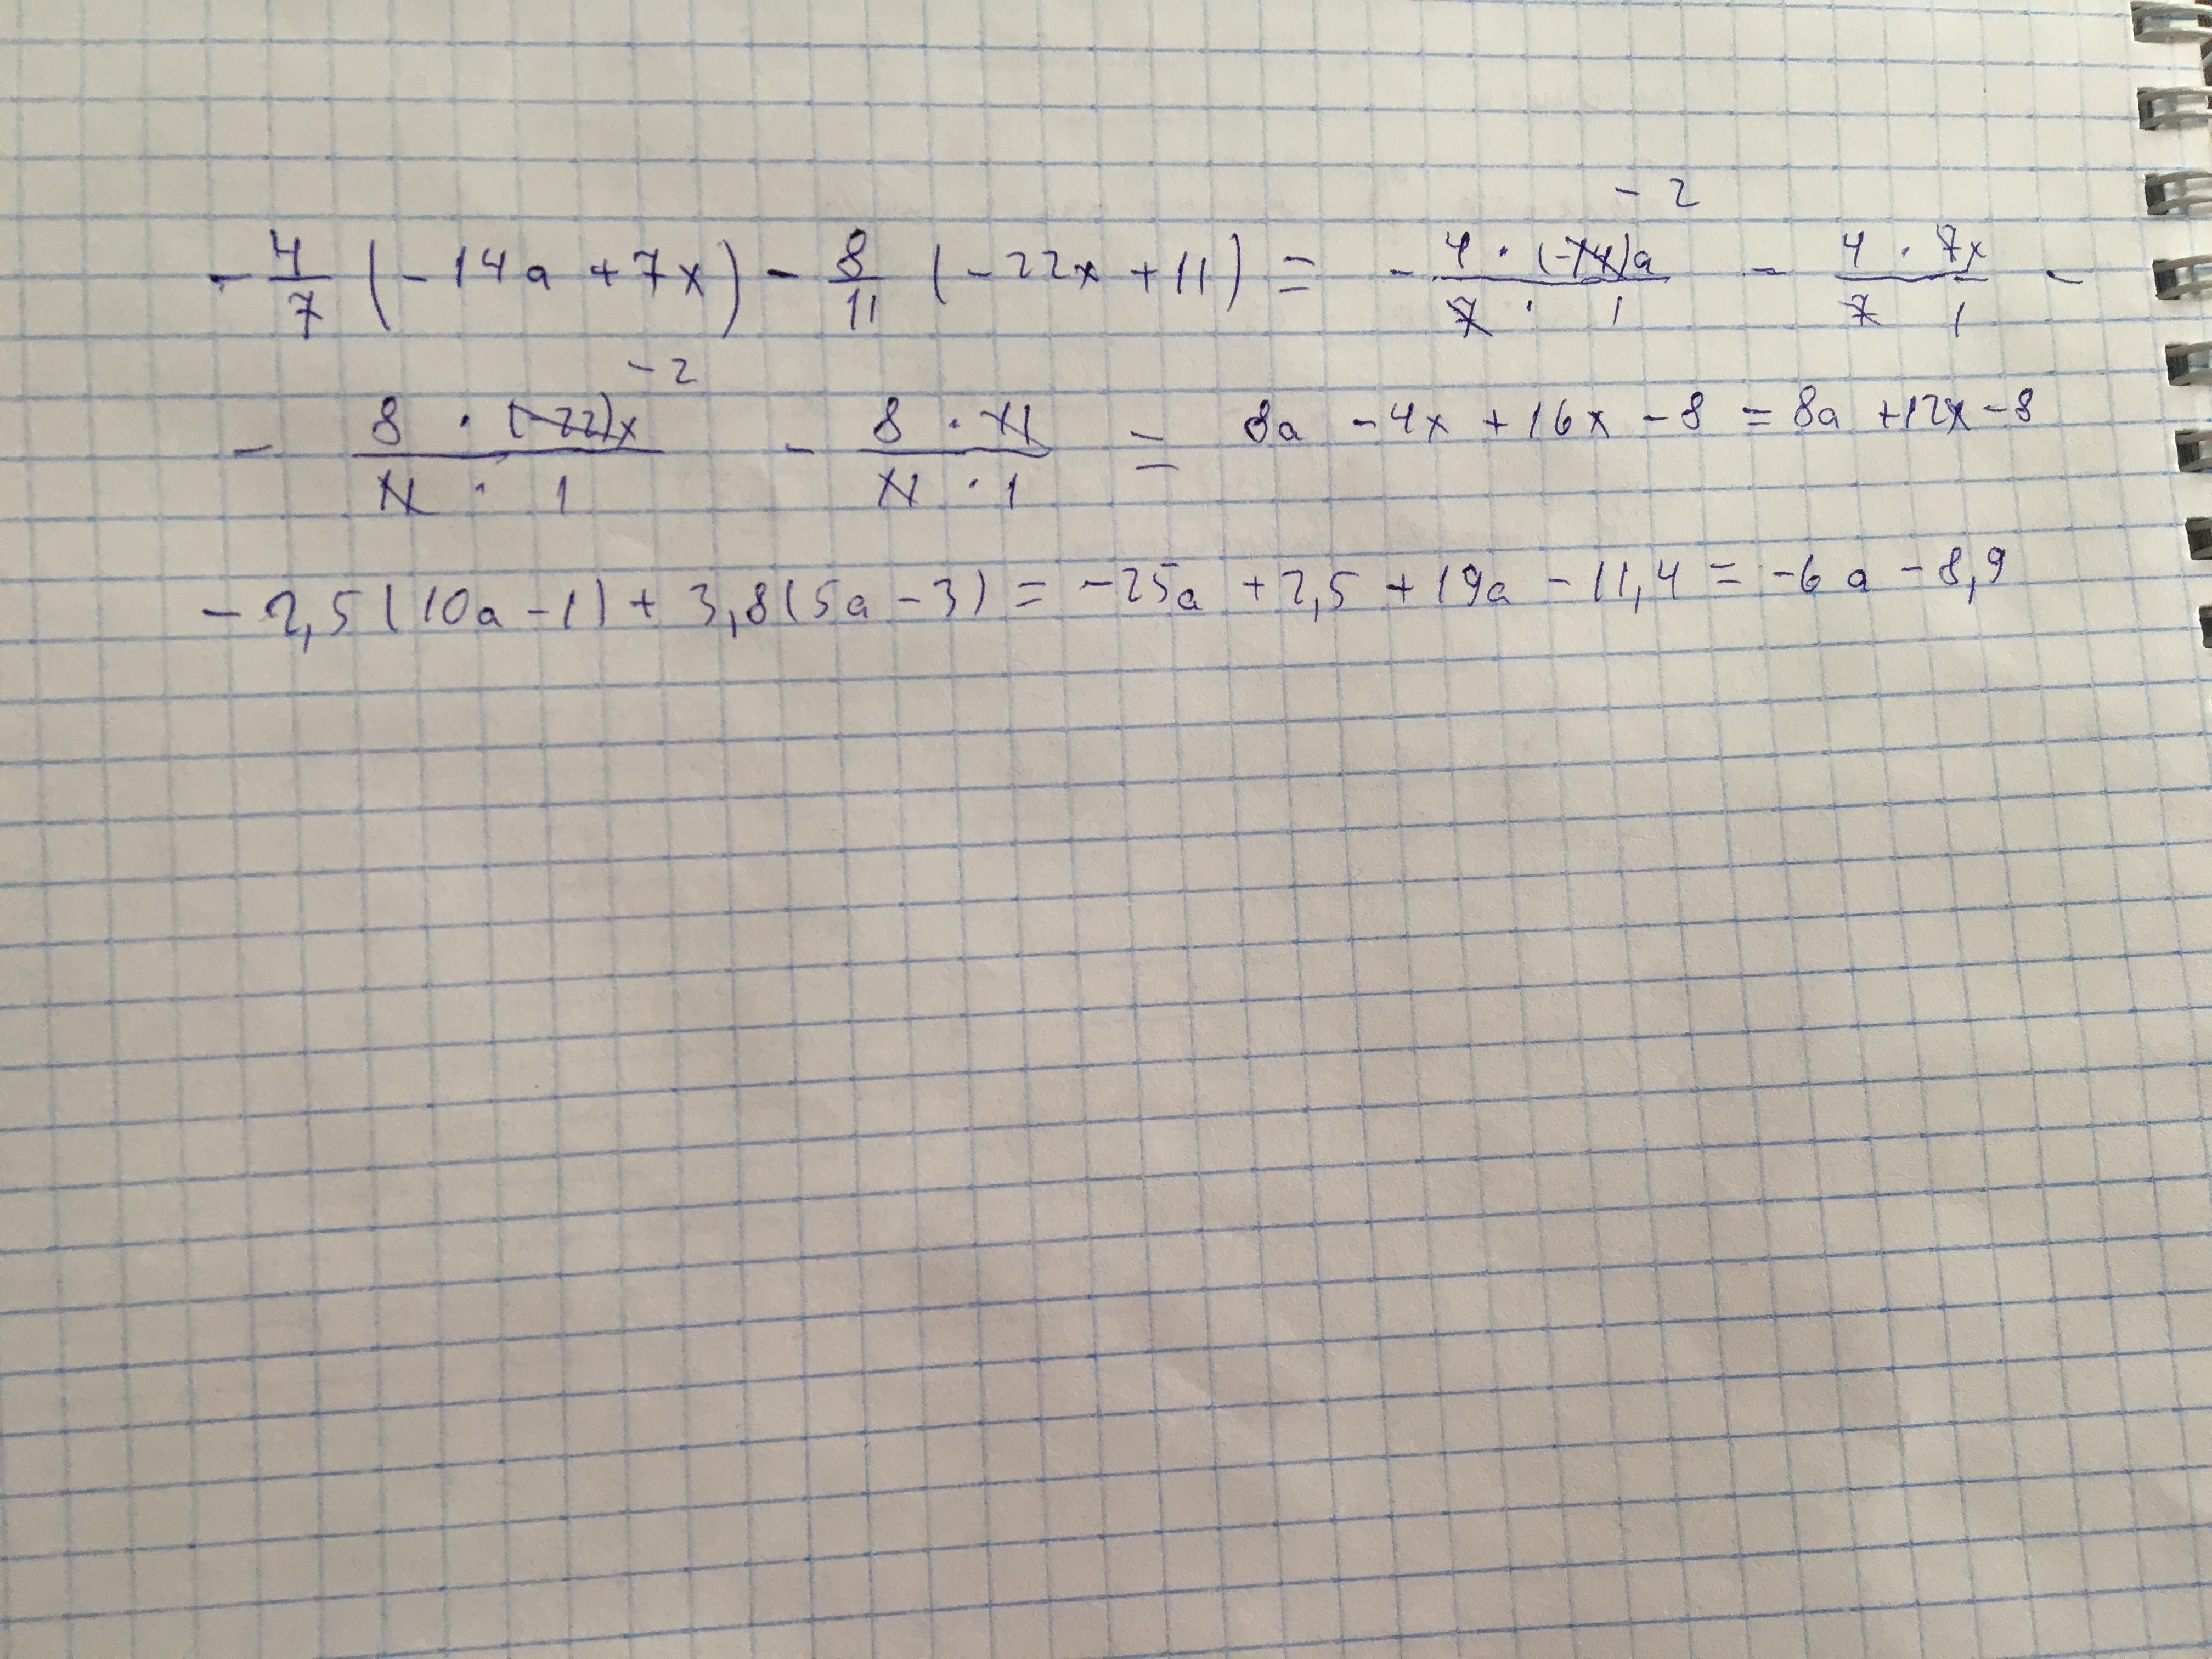 -2
- 4/7 (-14a + 7x) - 8/11 (-22x + 11) = - 4 · (-14)a / 7 · 1 - 4 · 7x / 7 1 -
-2
- 8 · (-22)x / 11 · 1 - 8 · 11 / 11 · 1 = 8a - 4x + 16x - 8 = 8a + 12x - 8
- 2,5(10a - 1) + 3,8(5a - 3) = -25a + 2,5 + 19a - 11,4 = -6a - 8,9